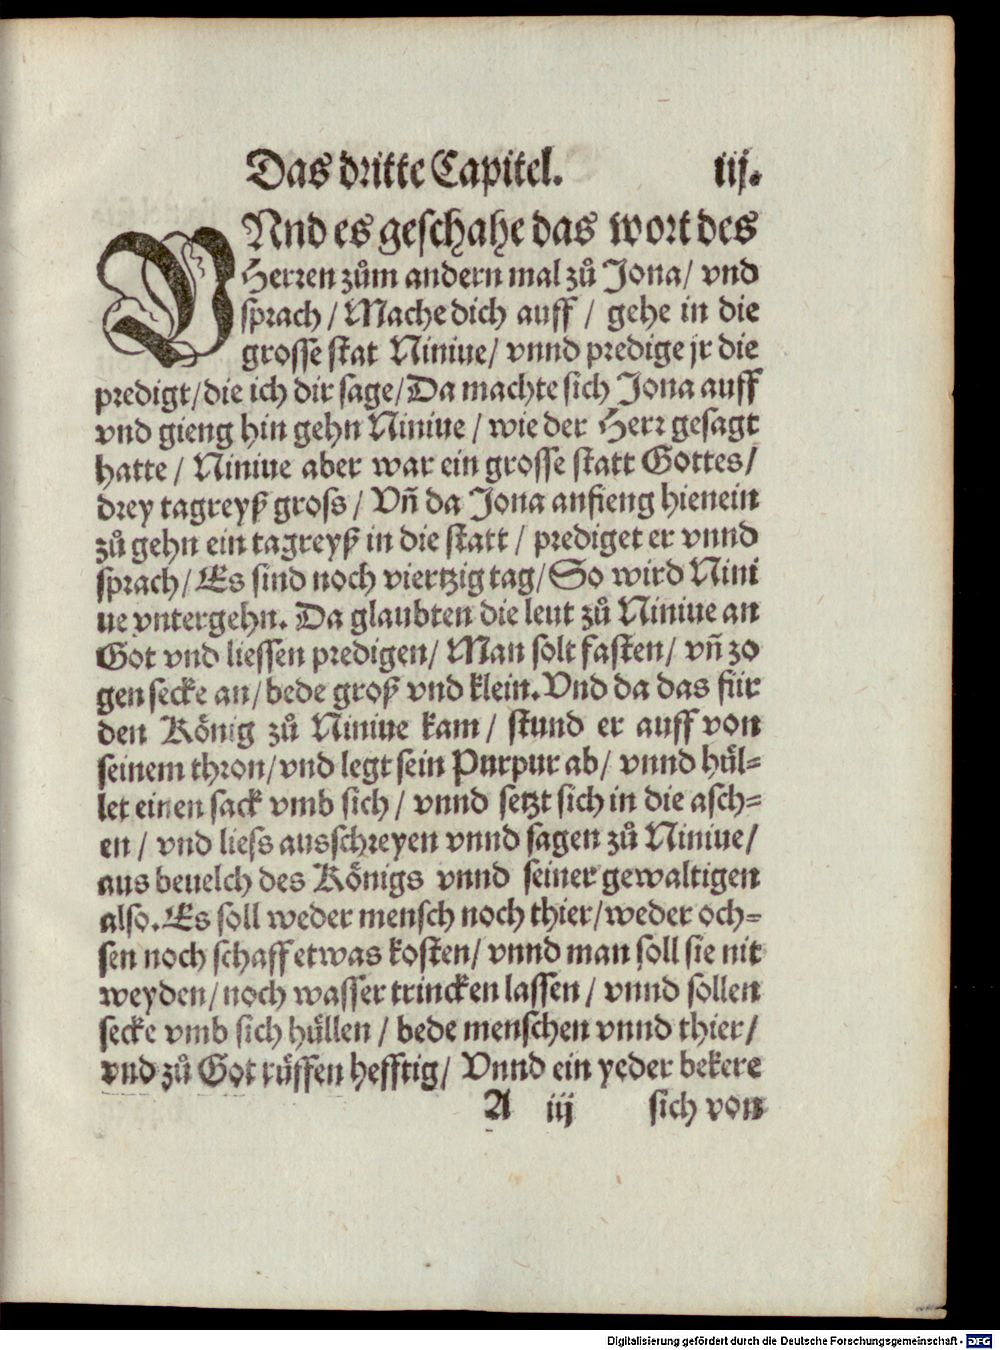 Das dritte Capitel. iij.
VNnd es geschahe das wort des
Herren zům andern mal zů Jona/ vnd
sprach / Mache dich auff / gehe in die
grosse stat Niniue/ vnnd predige jr die
predigt/die ich dir sage/Da machte sich Jona auff
vnd gieng hin gehn Niniue / wie der Herr gesagt
hatte / Niniue aber war ein grosse statt Gottes/
drey tagreyß gross / Vñ da Jona anfieng hienein
zů gehn ein tagreyß in die statt / prediget er vnnd
sprach/ Es sind noch viertzig tag/So wird Nini
ue vntergehn. Da glaubten die leut zů Niniue an
Got vnd liessen predigen/ Man solt fasten/ vñ zo
gen secke an/bede groß vnd klein.Vnd da das für
den König zů Niniue kam/ stund er auff von
seinem thron/vnd legt sein Purpur ab/ vnnd hül=
let einen sack vmb sich / vnnd setzt sich in die asch=
en / vnd liess ausschreyen vnnd sagen zů Niniue/
aus beuelch des Königs vnnd seiner gewaltigen
also.Es soll weder mensch noch thier/weder och=
sen noch schaff etwas kosten/ vnnd man soll sie nit
weyden/noch wasser trincken lassen / vnnd sollen
secke vmb sich hüllen / bede menschen vnnd thier/
vnd zů Got rüffen hefftig/ Vnnd ein yeder bekere
A iij sich von
Digitalisierung gefördert durch die Deutsche Forschungsgemeinschaft - DFG